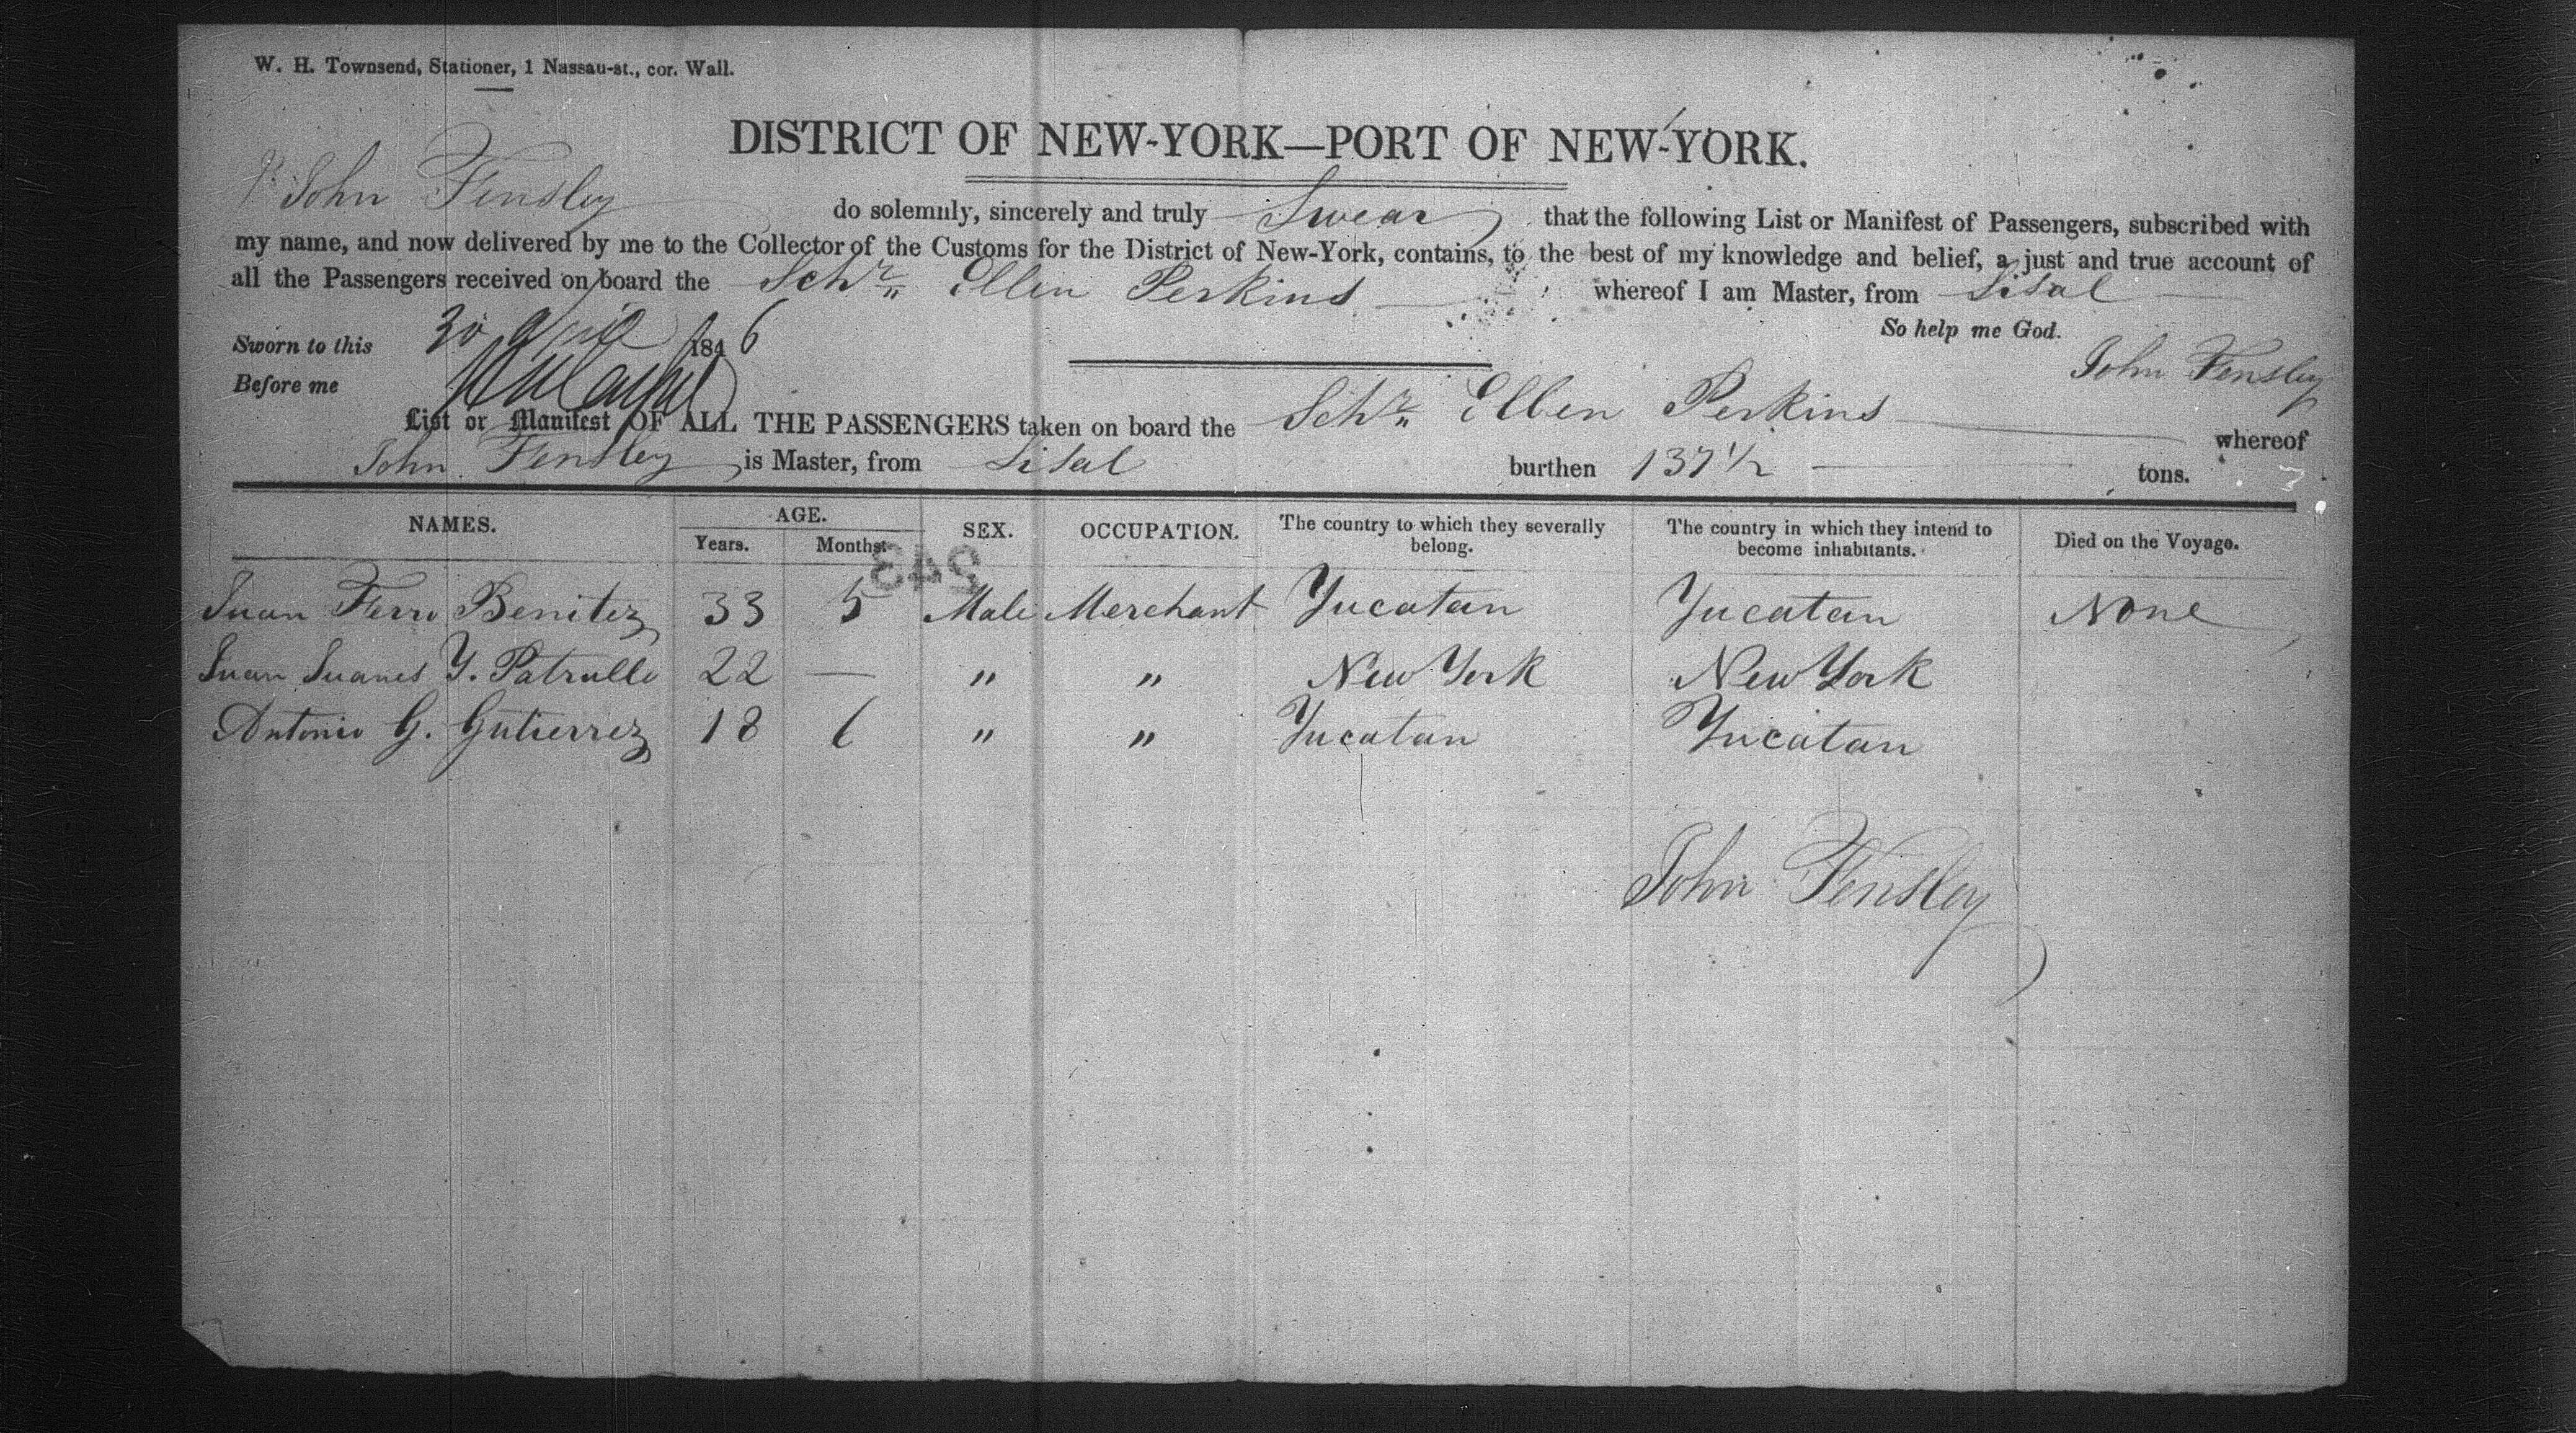 W. H. Townsend, Stationer, 1 Nassau-st., cor. Wall.
DISTRICT OF NEW-YORK—PORT OF NEW-YORK.
I, John Tensley do solemnly, sincerely and truly Swear that the following List or Manifest of Passengers, subscribed with
my name, and now delivered by me to the Collector of the Customs for the District of New-York, contains, to the best of my knowledge and belief, a just and true account of
all the Passengers received on board the Schr. Ellen Perkins whereof I am Master, from Sisal
So help me God.
Sworn to this 30 April 1846
John Tensley
Before me
List or Manifest OF ALL THE PASSENGERS taken on board the Schr. Ellen Perkins whereof
John Tensley is Master, from Sisal burthen 137 1/2 tons.
NAMES. AGE. SEX. OCCUPATION. The country to which they severally belong. The country in which they intend to become inhabitants. Died on the Voyage.
Years. Months.
243
Juan Ferro Benitez 33 5 Male Merchant Yucatan Yucatan None
Juan Juanes Y. Patrullo 22 — " " New York New York
Antonio G. Gutierrez 18 6 " " Yucatan Yucatan
John Tensley